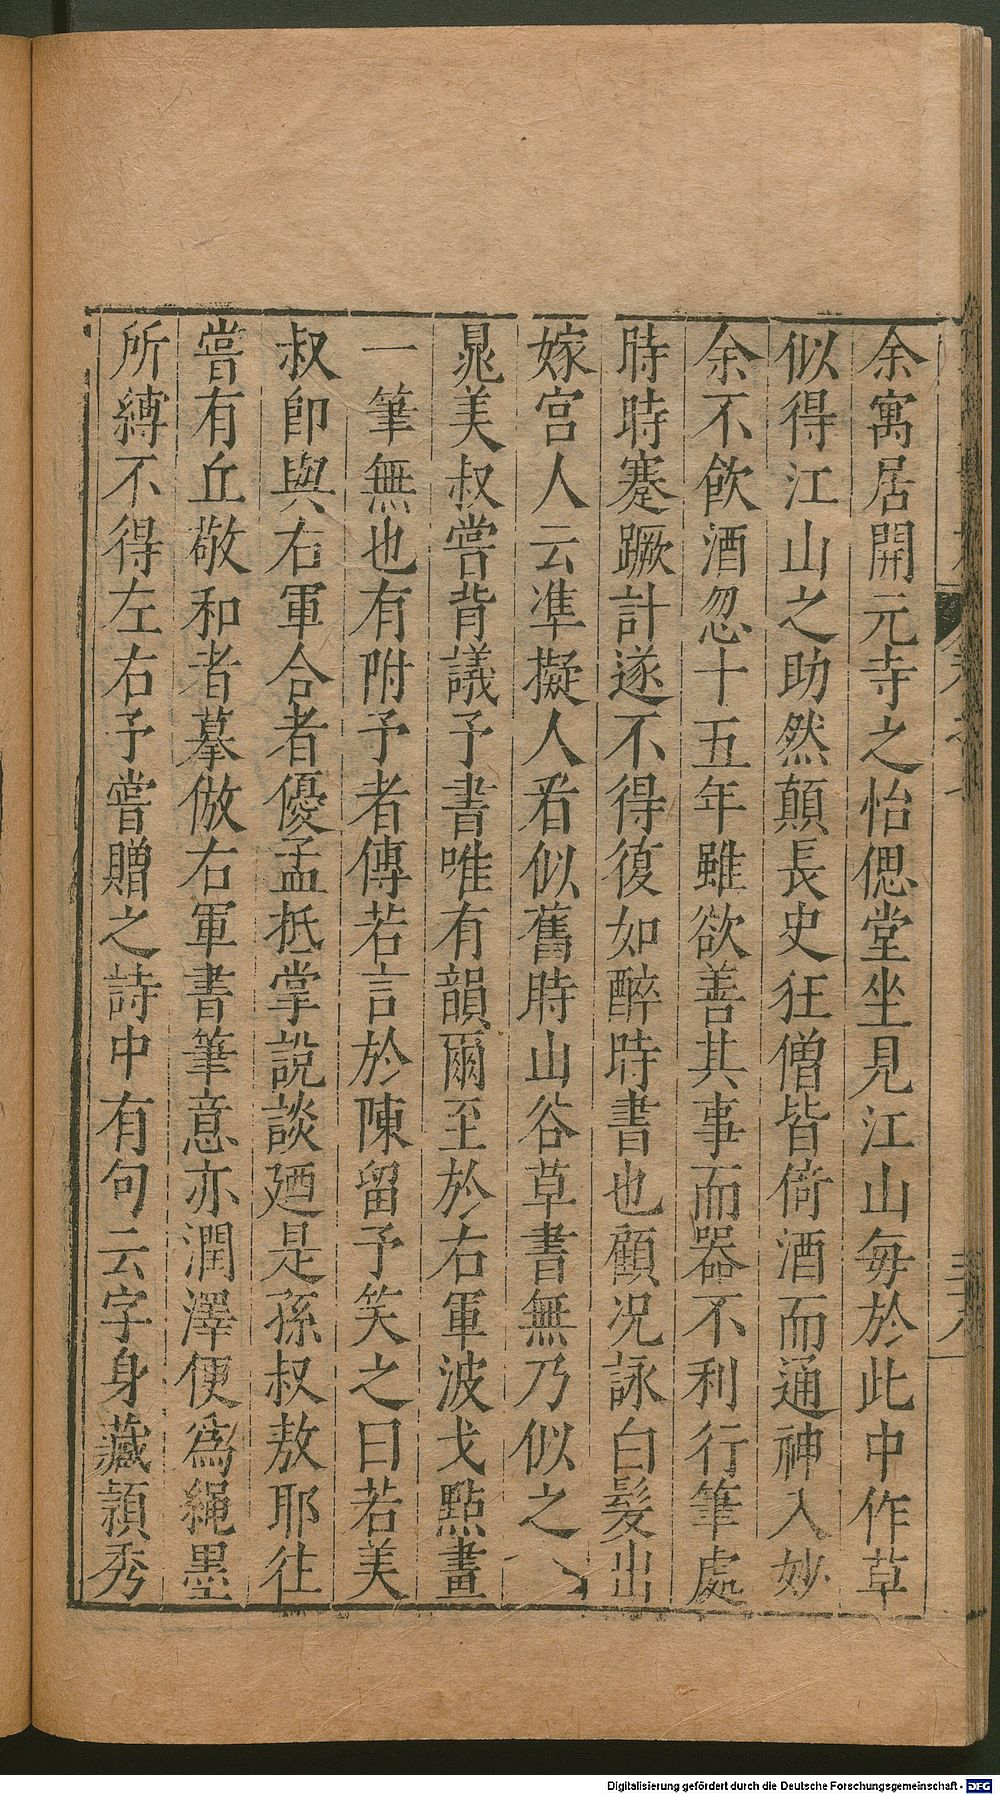 余寓居開元寺之怡偲堂坐見江山每於此中作草
似得江山之助然顛長史狂僧皆倚酒而通神入妙
余不飲酒忽十五年雖欲善其事而器不利行筆處
時時蹇蹶計遂不得復如醉時書也顧况詠白髮出
嫁宮人云準擬人看似舊時山谷草書無乃似之
晁美叔嘗背議予書唯有韻爾至於右軍波戈點畫
一筆無也有附予者傳若言於陳留予笑之曰若美
叔即與右軍合者優孟抵掌說談廼是孫叔敖耶往
嘗有丘敬和者摹倣右軍書筆意亦潤澤便為繩墨
所縛不得左右予嘗贈之詩中有句云字身藏頴秀
Digitalisierung gefördert durch die Deutsche Forschungsgemeinschaft - DFG